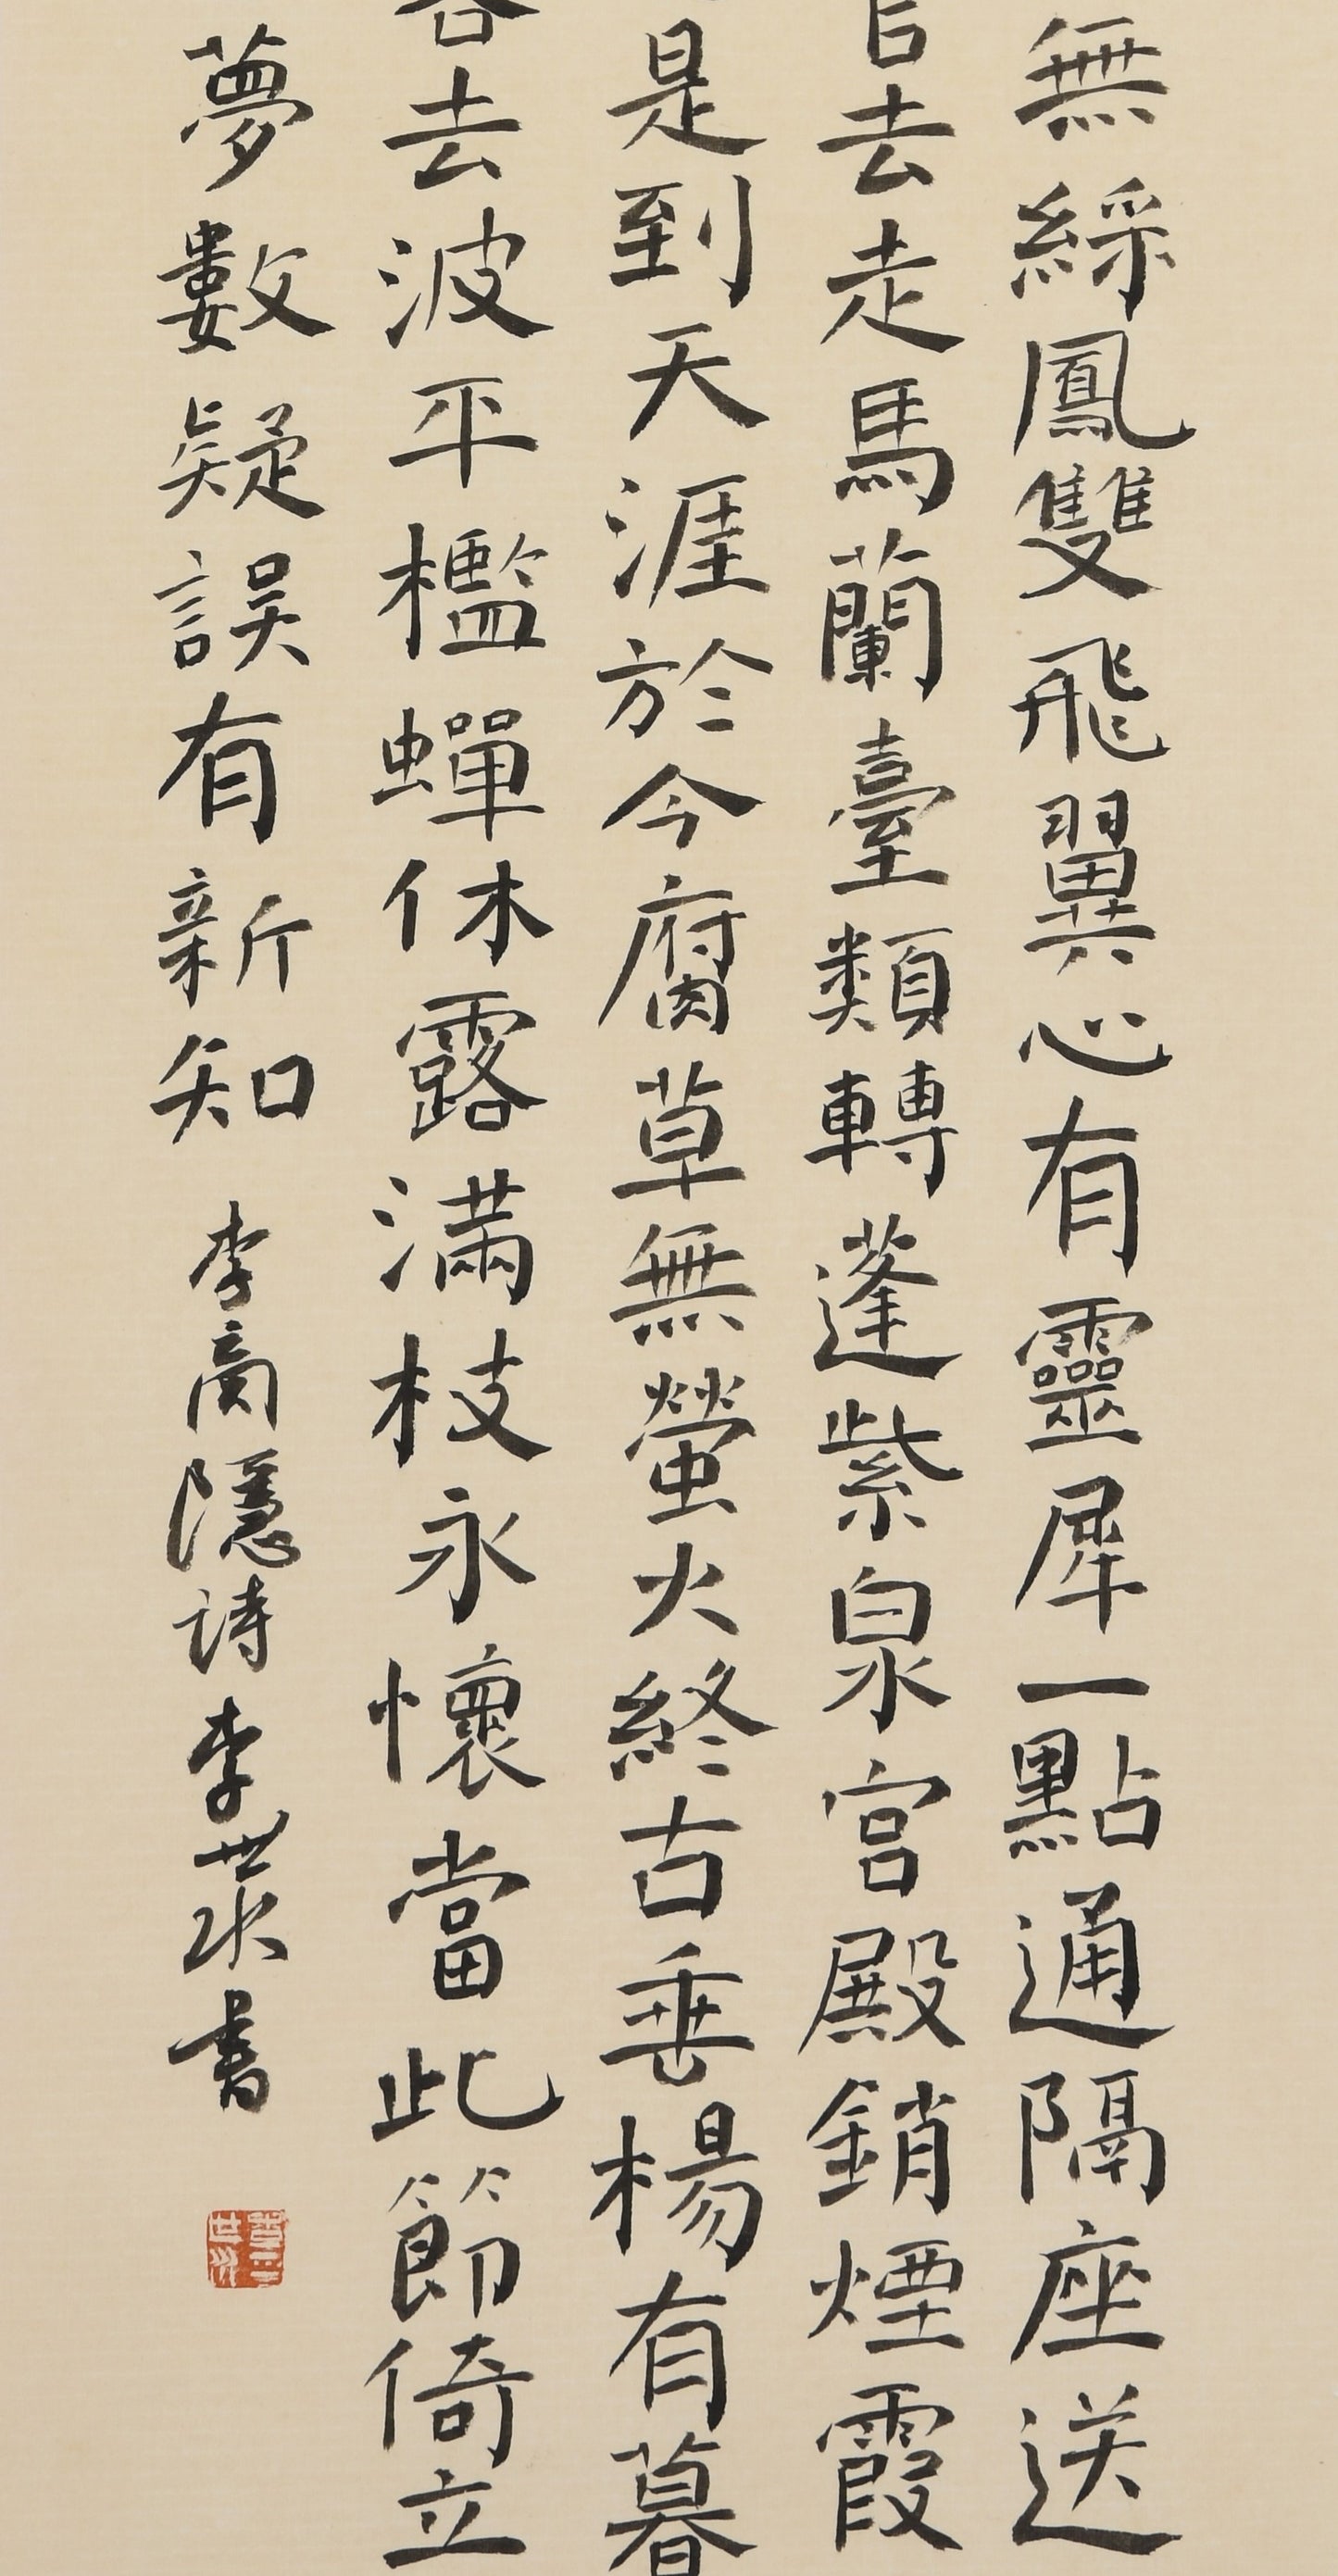 無綵鳳雙飛翼心有靈犀一點通隔座送
去走馬蘭臺類轉蓬紫泉宮殿鎖煙霞
是到天涯於今腐草無螢火終古垂楊有暮
去波平檻蟬休露滿枝永懷當此節倚立
夢數疑誤有新知 李商隱詩 李世 書